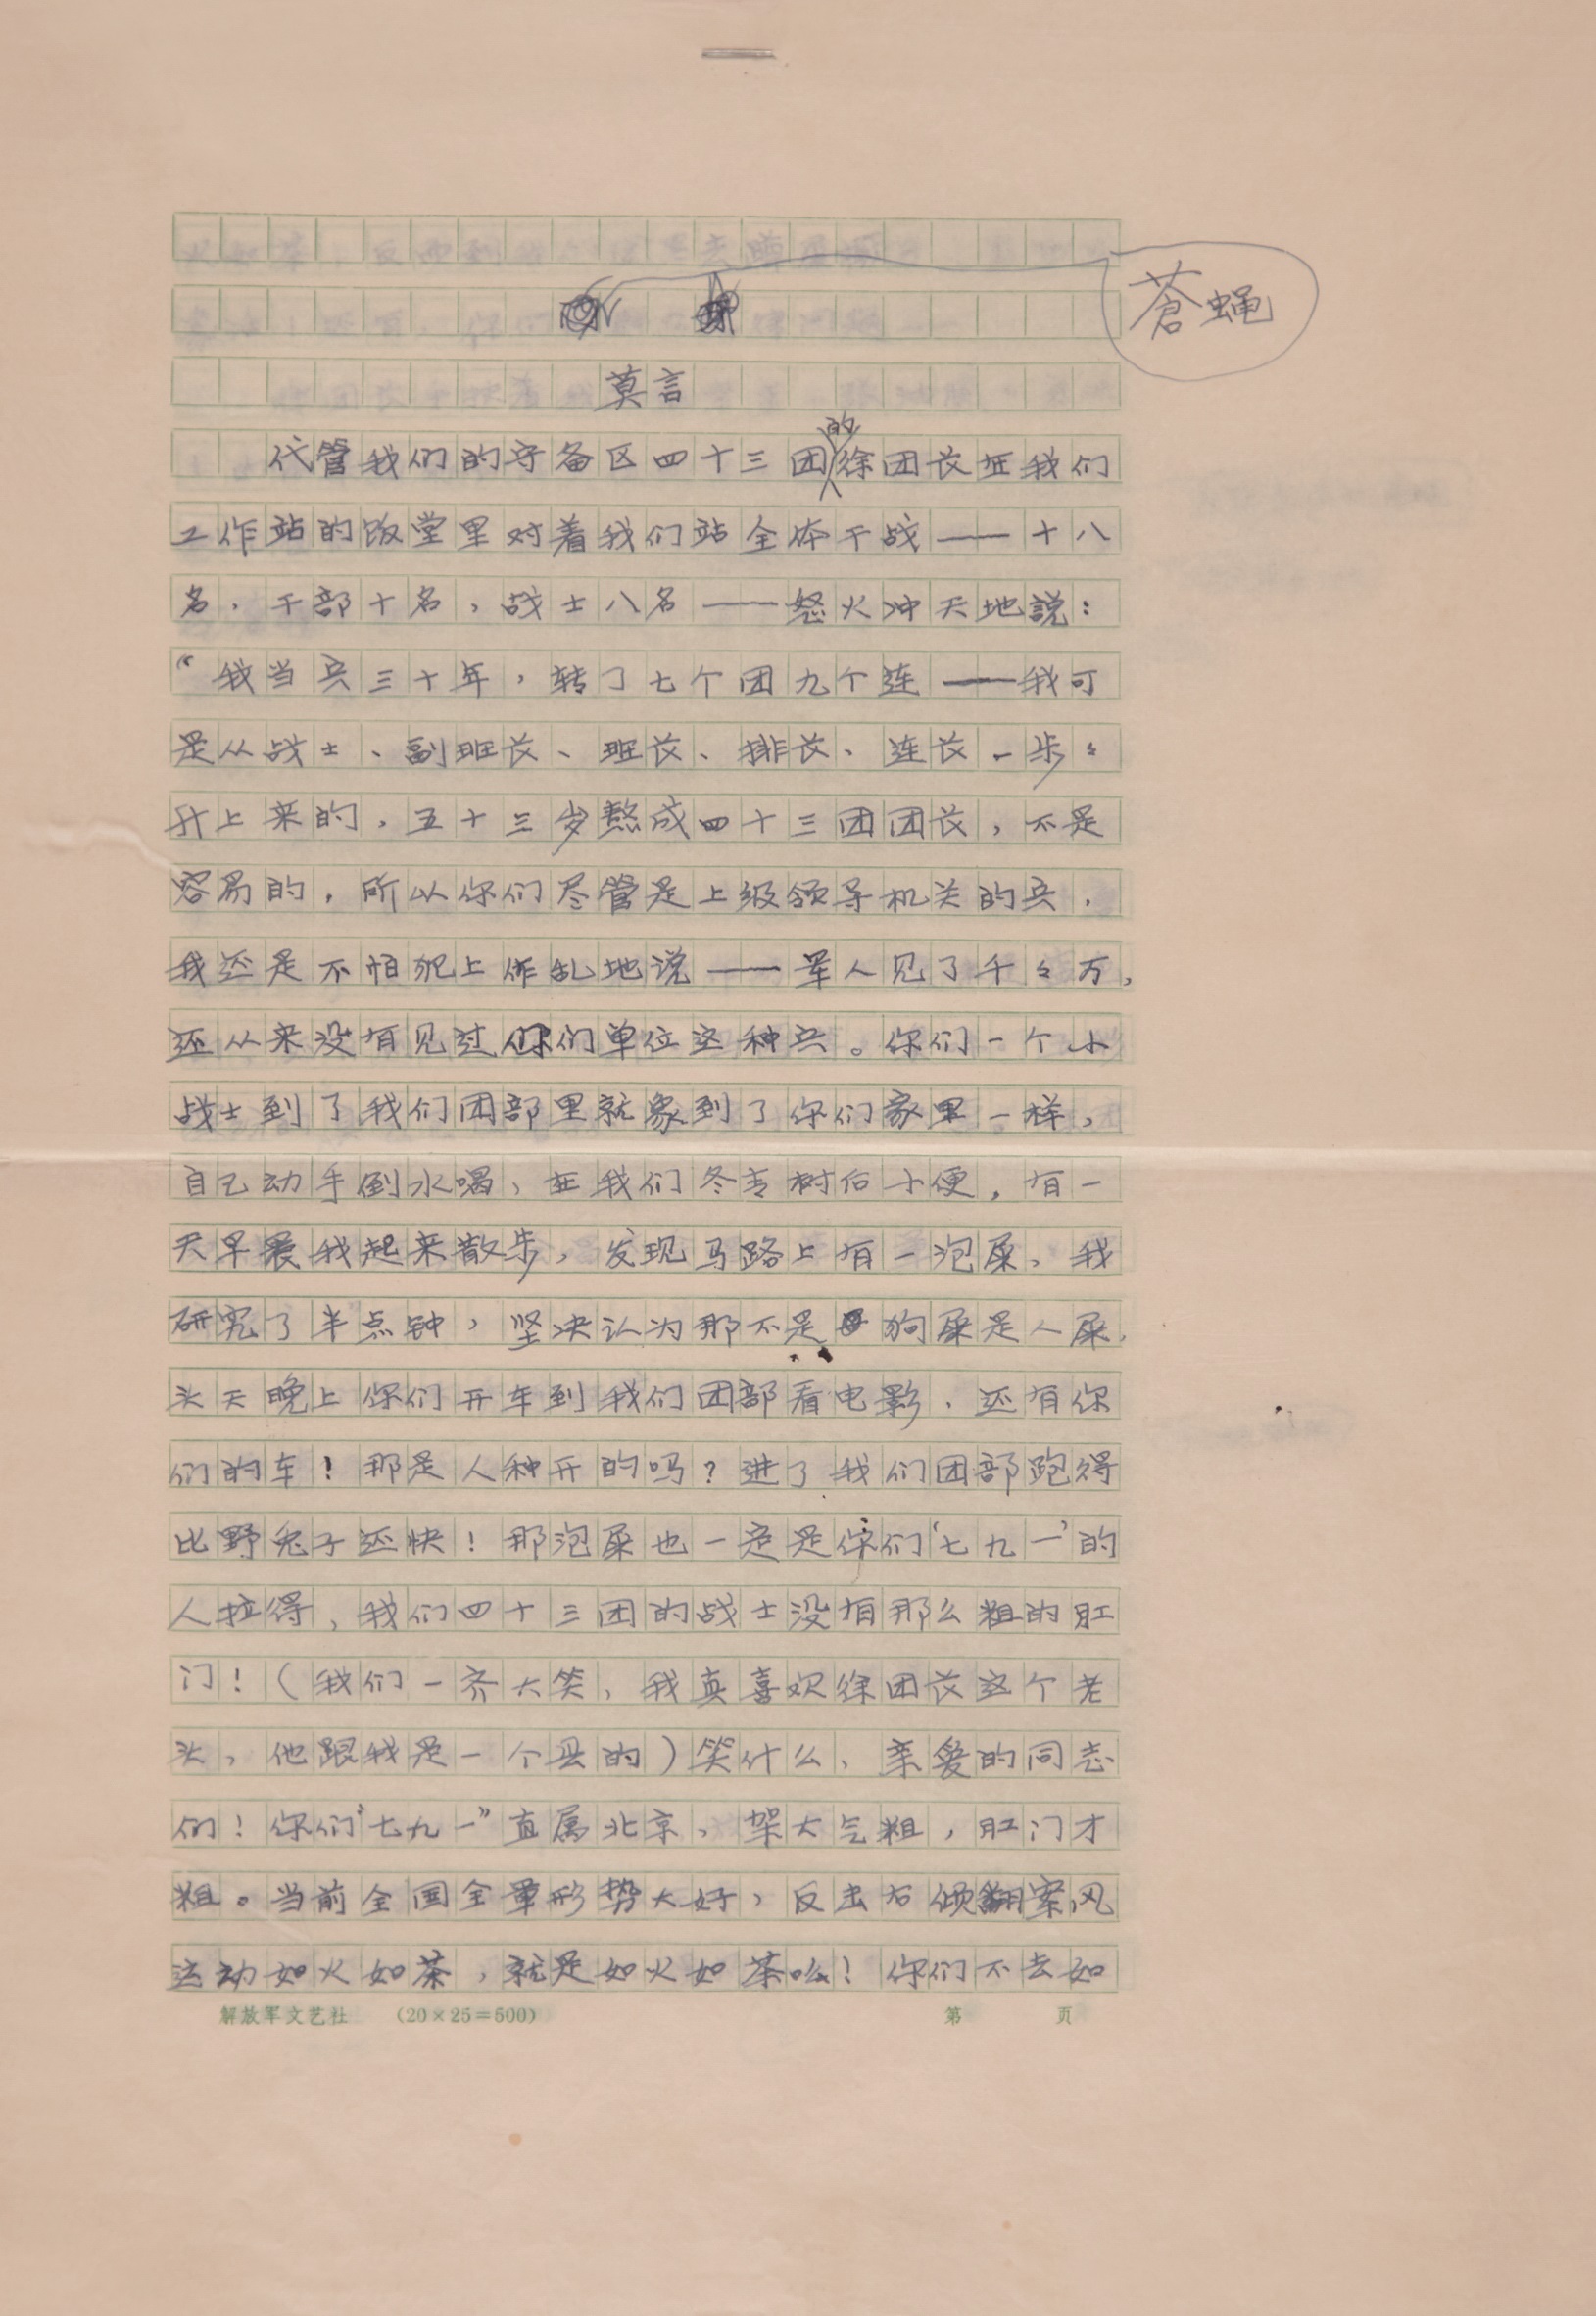 蒼蝇
莫言
代管我们的守备区四十三团的徐团长在我们
工作站的饭堂里对着我们站全体干战——十八
名，干部十名，战士八名——怒火冲天地説：
“我当兵三十年，转了七个团九个连——我可
是从战士、副班长、班长、排长、连长一步々
升上来的，五十三岁熬成四十三团团长，不是
容易的，所以你们尽管是上级领导机关的兵，
我还是不怕犯上作乱地说——軍人见了千々万，
还从来没有见过你们单位这种兵。你们一个小
战士到了我们团部里就象到了你们家里一样，
自己动手倒水喝，在我们冬青树后小便，有一
天早晨我起来散步，发现马路上有一泡屎，我
研究了半点钟，坚决认为那不是狗屎是人屎，
头天晚上你们开车到我们团部看电影，还有你
们的车！那是人种开的吗？进了我们团部跑得
比野兔子还快！那泡屎也一定是你们‘七九一’的
人拉得，我们四十三团的战士没有那么粗的肛
门！（我们一齐大笑，我真喜欢徐团长这个老
头，他跟我是一个县的）笑什么，亲爱的同志
们！你们“七九一”直属北京，架大气粗，肛门才
粗。当前全国全軍形势大好，反击右倾翻案风
运动如火如荼，就是如火如荼吆！你们不去如
解放军文艺社 （20×25＝500） 第 页